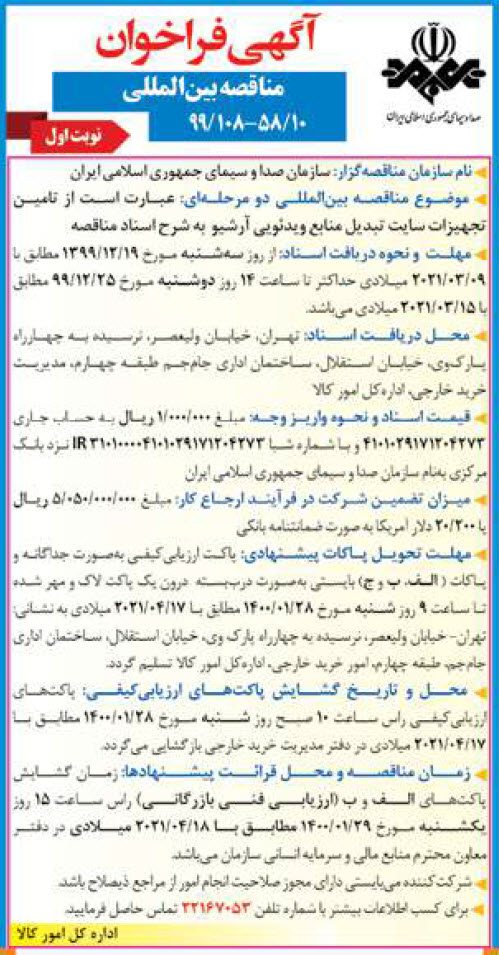 آگهی فراخوان
مناقصه بین‌المللی
۹۹/۱۰۸-۵۸/۱۰
نوبت اول
صدا و سیمای جمهوری اسلامی ایران
نام سازمان مناقصه‌گزار: سازمان صدا و سیمای جمهوری اسلامی ایران
موضوع مناقصه بین‌المللی دو مرحله‌ای: عبارت است از تامین
تجهیزات سایت تبدیل منابع ویدئویی آرشیو به شرح اسناد مناقصه
مهلت و نحوه دریافت اسناد: از روز سه‌شنبه مورخ ۱۳۹۹/۱۲/۱۹ مطابق با
۲۰۲۱/۰۳/۰۹ میلادی حداکثر تا ساعت ۱۴ روز دوشنبه مورخ ۹۹/۱۲/۲۵ مطابق
با ۲۰۲۱/۰۳/۱۵ میلادی می‌باشد.
محل دریافت اسناد: تهران، خیابان ولیعصر، نرسیده به چهارراه
پارک‌وی، خیابان استقلال، ساختمان اداری جام‌جم طبقه چهارم، مدیریت
خرید خارجی، اداره‌کل امور کالا
قیمت اسناد و نحوه واریز وجه: مبلغ ۱/۰۰۰/۰۰۰ ریال به حساب جاری
۴۱۰۱۰۲۹۱۷۱۲۰۴۲۷۳ و با شماره شبا IR ۳۱۰۱۰۰۰۰۴۱۰۱۰۲۹۱۷۱۲۰۴۲۷۳ نزد بانک
مرکزی به‌نام سازمان صدا و سیمای جمهوری اسلامی ایران
میزان تضمین شرکت در فرآیند ارجاع کار: مبلغ ۵/۰۵۰/۰۰۰/۰۰۰ ریال
یا ۲۰/۲۰۰ دلار آمریکا به صورت ضمانتنامه بانکی
مهلت تحویل پاکات پیشنهادی: پاکت ارزیابی‌کیفی به‌صورت جداگانه و
پاکات (الف، ب و ج) بایستی به‌صورت دربسته درون یک پاکت لاک و مهر شده
تا ساعت ۹ روز شنبه مورخ ۱۴۰۰/۰۱/۲۸ مطابق با ۲۰۲۱/۰۴/۱۷ میلادی به نشانی:
تهران- خیابان ولیعصر، نرسیده به چهارراه پارک وی، خیابان استقلال، ساختمان اداری
جام‌جم، طبقه چهارم، امور خرید خارجی، اداره‌کل امور کالا تسلیم گردد.
محل و تاریخ گشایش پاکت‌های ارزیابی‌کیفی: پاکت‌های
ارزیابی‌کیفی راس ساعت ۱۰ صبح روز شنبه مورخ ۱۴۰۰/۰۱/۲۸ مطابق با
۲۰۲۱/۰۴/۱۷ میلادی در دفتر مدیریت خرید خارجی بازگشایی می‌گردد.
زمان مناقصه و محل قرائت پیشنهادها: زمان گشایش
پاکت‌های الف و ب (ارزیابی فنی بازرگانی) راس ساعت ۱۵ روز
یکشنبه مورخ ۱۴۰۰/۰۱/۲۹ مطابق با ۲۰۲۱/۰۴/۱۸ میلادی در دفتر
معاون محترم منابع مالی و سرمایه انسانی سازمان می‌باشد.
شرکت‌کننده می‌بایستی دارای مجوز صلاحیت انجام امور از مراجع ذیصلاح باشد.
برای کسب اطلاعات بیشتر با شماره تلفن ۲۲۱۶۷۰۵۳ تماس حاصل فرمایید.
اداره کل امور کالا